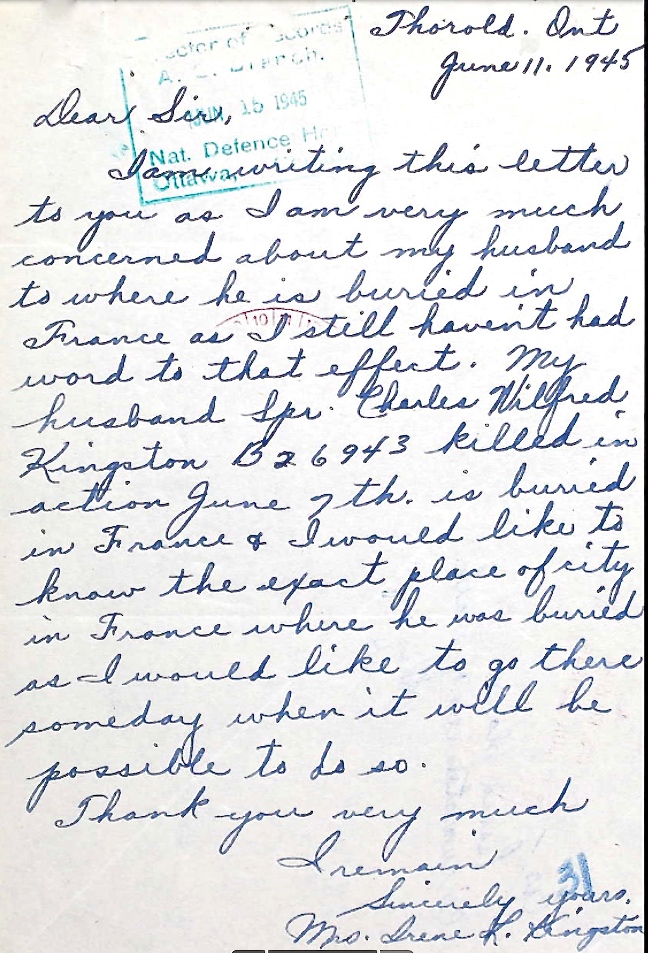 Thorold. Ont
June 11. 1945
Records
A. G. Branch.
JUN 15 1945
Nat. Defence
Ottawa,
Dear Sir,
I am writing this letter
to you as I am very much
concerned about my husband
to where he is buried in
France as I still haven't had
word to that effect. My
husband Spr. Charles Wilfred
Kingston B26943 killed in
action June 7th. is buried
in France & I would like to
know the exact place of city
in France where he was buried
as I would like to go there
someday when it will be
possible to do so.
Thank you very much
I remain
31
Sincerely yours,
Mrs. Irene K. Kingston